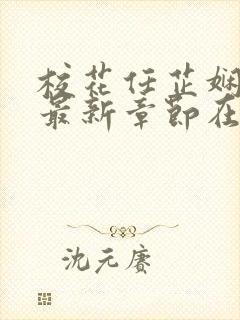 校花任芷娴
最新章节在
沈元赛